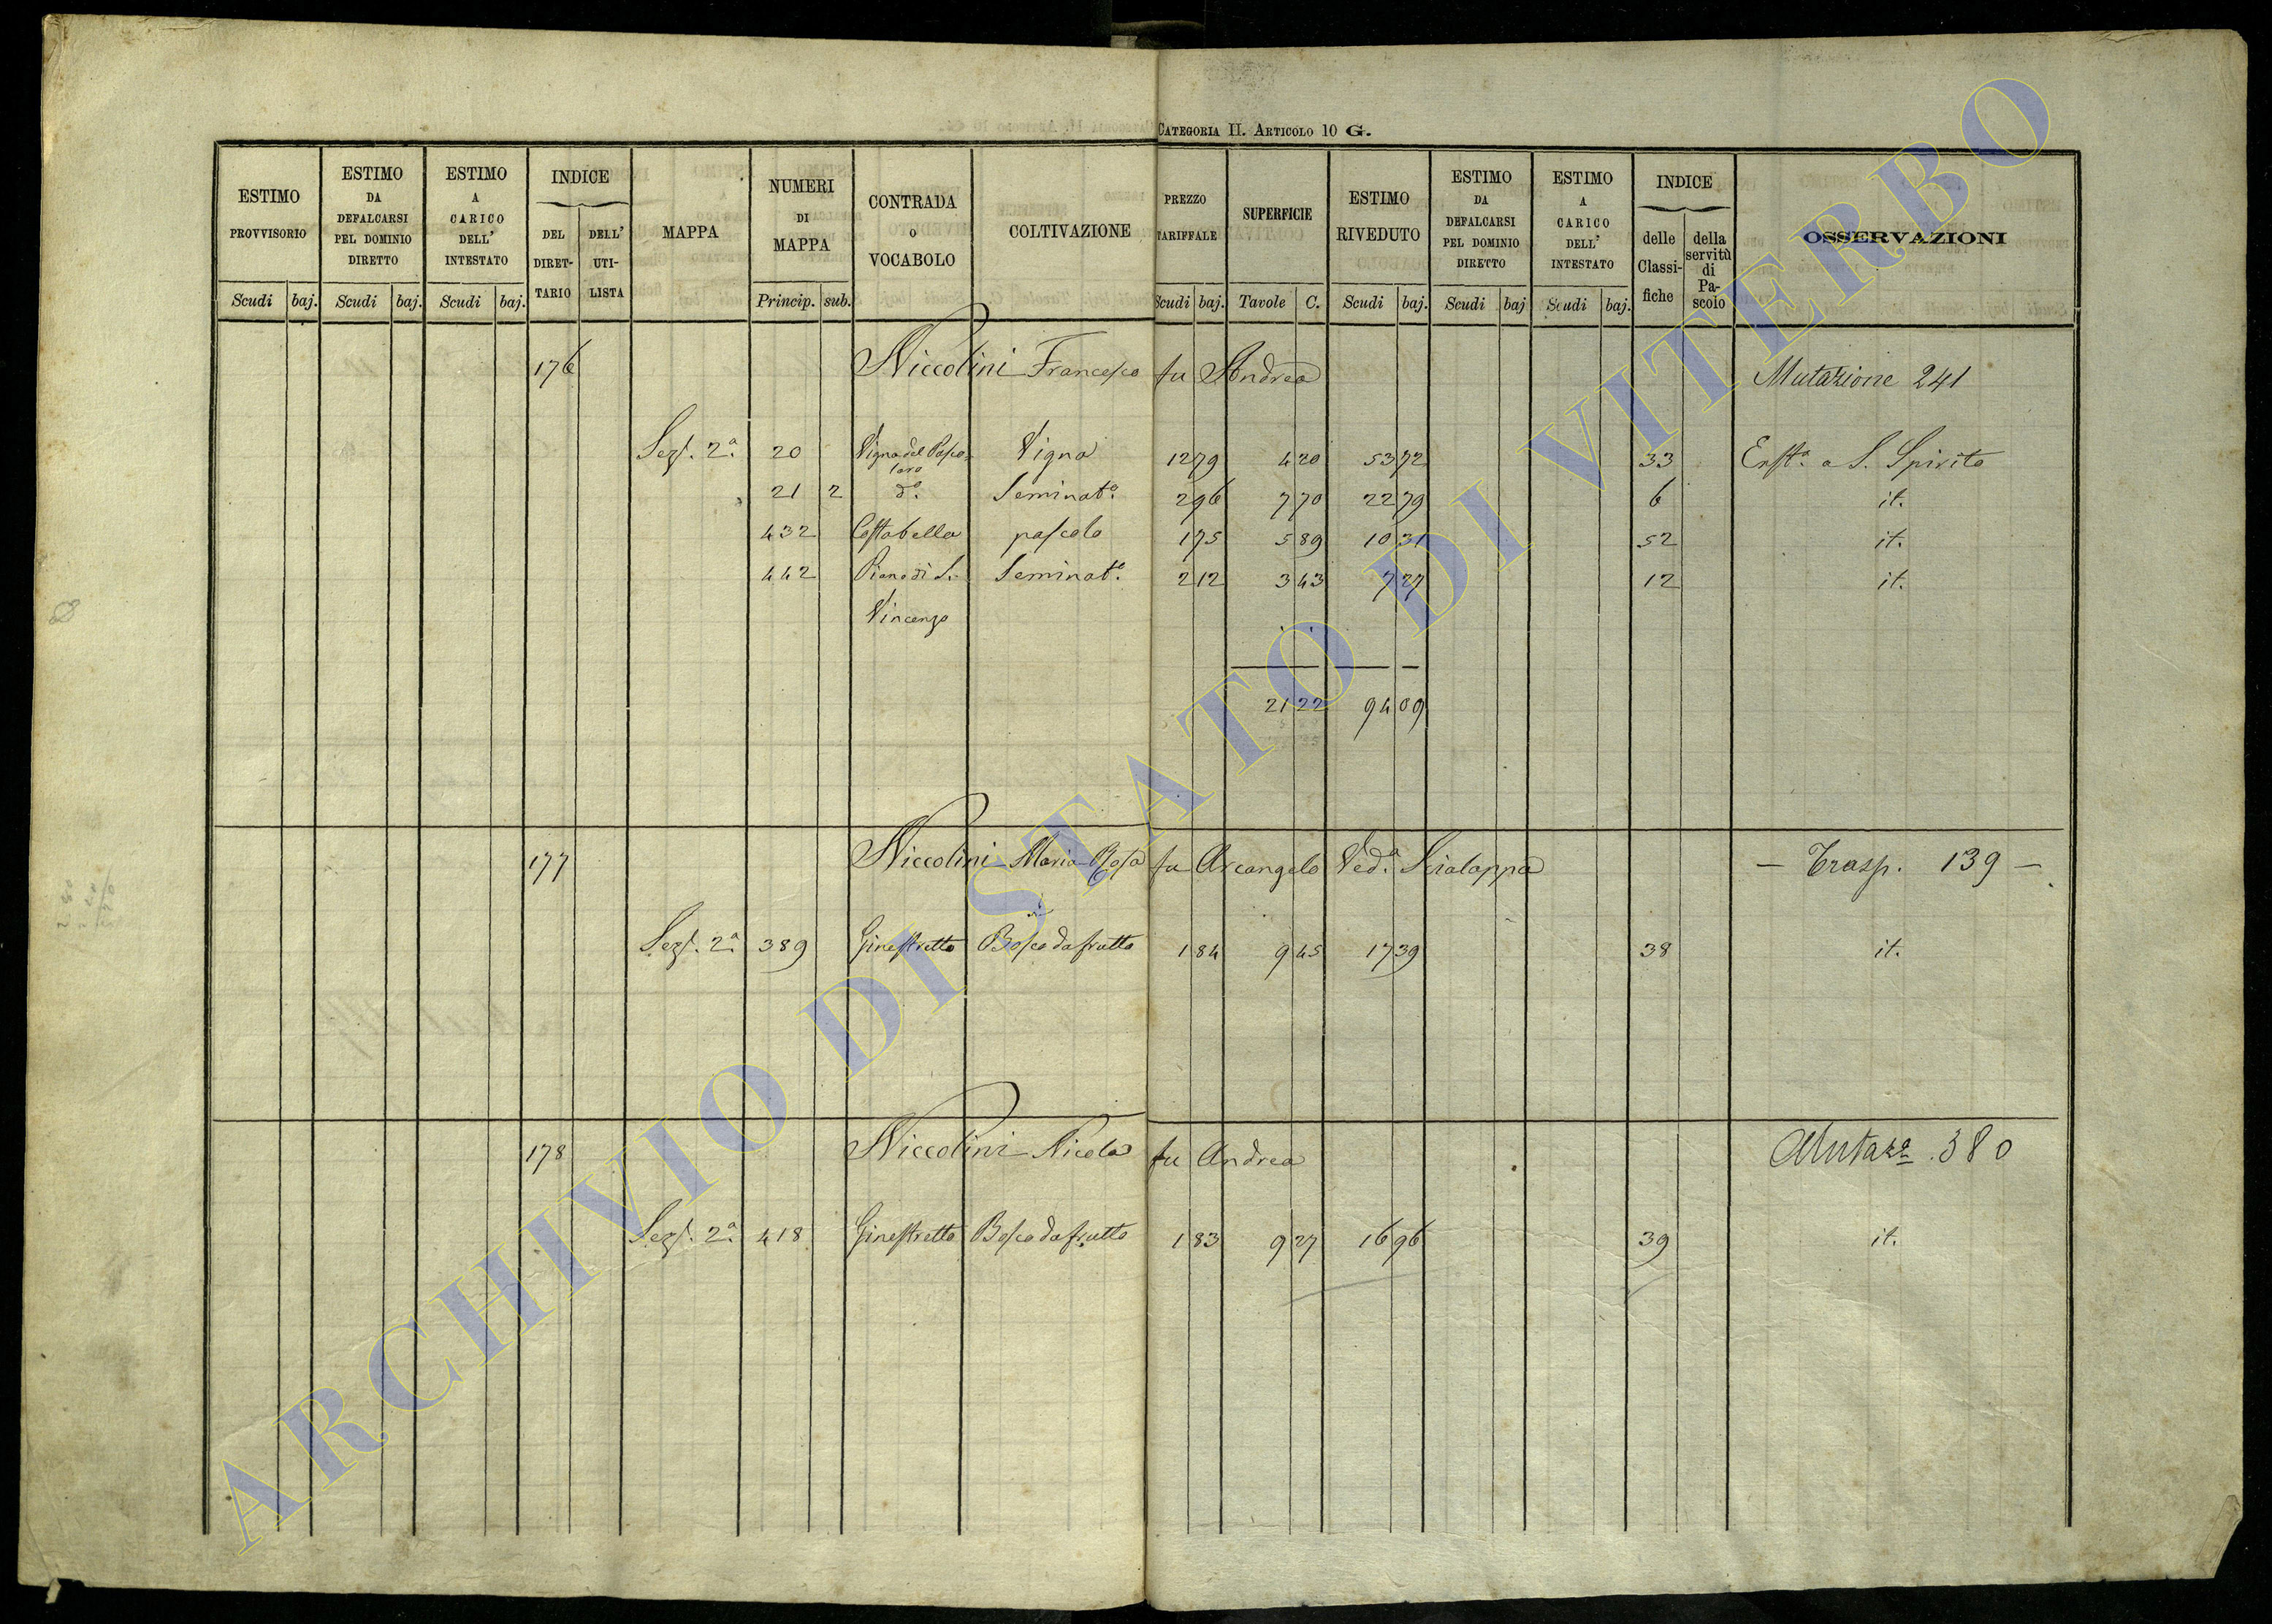 CATEGORIA II. ARTICOLO 10 G.
ESTIMO PROVVISORIO Scudi baj.
ESTIMO DA DEFALCARSI PEL DOMINIO DIRETTO Scudi baj.
ESTIMO A CARICO DELL' INTESTATO Scudi baj.
INDICE DEL DIRET-TARIO DELL' UTI-LISTA
MAPPA
NUMERI DI MAPPA Princip. sub.
CONTRADA O VOCABOLO
COLTIVAZIONE
PREZZO TARIFFALE Scudi baj.
SUPERFICIE Tavole C.
ESTIMO RIVEDUTO Scudi baj.
ESTIMO DA DEFALCARSI PEL DOMINIO DIRETTO Scudi baj
ESTIMO A CARICO DELL' INTESTATO Scudi baj.
INDICE delle Classi-fiche della servitù di Pa-scolo
OSSERVAZIONI
176 Niccolini Francesco fu Andrea Mutazione 241
Sez. 2a. 20 Vigna del Vigna 12 79 4 20 53 72 33 Enfta. a S. Spirito
21 2 do. Seminato. 2 96 7 70 22 79 6 it.
432 Costabella pascolo 1 75 5 89 10 31 52 it.
442 Piano di S. Seminato. 2 12 3 43 7 27 12 it.
Vincenzo
21 22 94 09
177 Niccolini Maria Rosa fu Arcangelo Ved.a Scialappa — Trasp. 139 —
Sez. 2a. 389 Ginestretto Bosco da frutto 1 84 9 45 17 39 38 it.
178 Niccolini Nicola fu Andrea Mutaze. 380
Sez. 2a. 418 Ginestretto Bosco da frutto 1 83 9 27 16 96 39 it.
ARCHIVIO DI STATO DI VITERBO